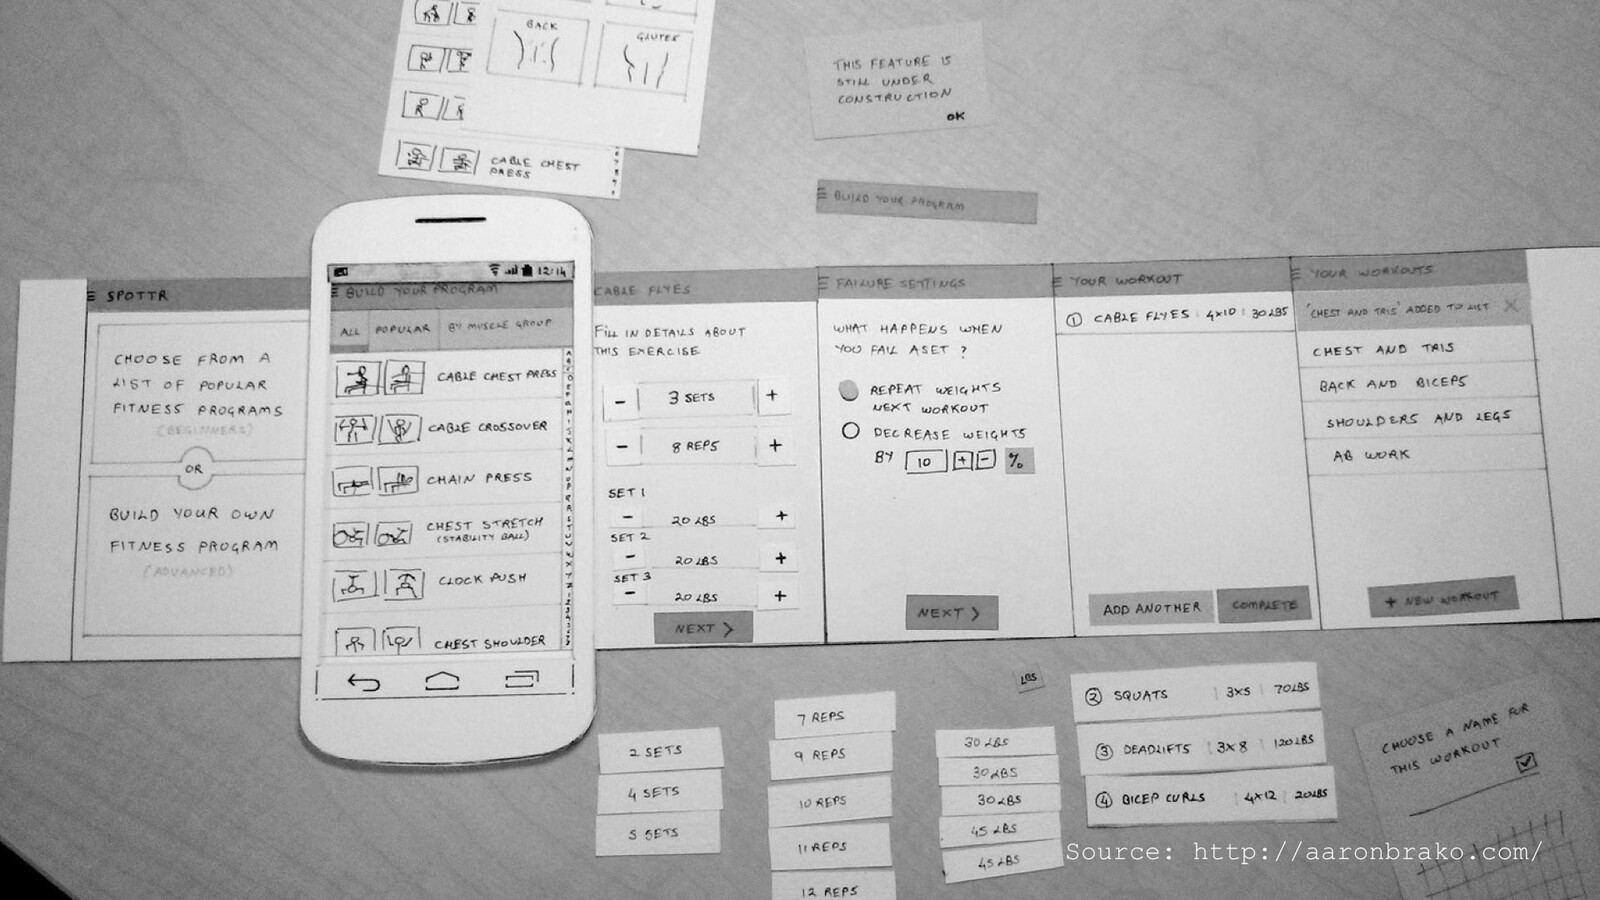 BACK
GLUTES
CABLE CHEST
PRESS
THIS FEATURE IS
STILL UNDER
CONSTRUCTION
OK
BUILD YOUR PROGRAM
SPOTTR
CHOOSE FROM A
LIST OF POPULAR
FITNESS PROGRAMS
(BEGINNERS)
OR
BUILD YOUR OWN
FITNESS PROGRAM
(ADVANCED)
12:14
BUILD YOUR PROGRAM
ALL POPULAR BY MUSCLE GROUP
CABLE CHEST PRESS
CABLE CROSSOVER
CHAIN PRESS
CHEST STRETCH
(STABILITY BALL)
CLOCK PUSH
CHEST SHOULDER
CABLE FLYES
FILL IN DETAILS ABOUT
THIS EXERCISE
- 3 SETS +
- 8 REPS +
SET 1
- 20 LBS +
SET 2
- 20 LBS +
SET 3
- 20 LBS +
NEXT >
FAILURE SETTINGS
WHAT HAPPENS WHEN
YOU FAIL A SET ?
REPEAT WEIGHTS
NEXT WORKOUT
DECREASE WEIGHTS
BY 10 + - %
NEXT >
YOUR WORKOUT
1 CABLE FLYES | 4X10 | 30LBS
ADD ANOTHER COMPLETE
YOUR WORKOUTS
'CHEST AND TRIS' ADDED TO LIST X
CHEST AND TRIS
BACK AND BICEPS
SHOULDERS AND LEGS
AB WORK
+ NEW WORKOUT
2 SETS
4 SETS
5 SETS
7 REPS
9 REPS
10 REPS
11 REPS
12 REPS
LBS
30 LBS
30 LBS
30 LBS
45 LBS
45 LBS
2 SQUATS | 3X5 | 70LBS
3 DEADLIFTS | 3X8 | 120LBS
4 BICEP CURLS | 4X12 | 20LBS
CHOOSE A NAME FOR
THIS WORKOUT
Source: http://aaronbrako.com/